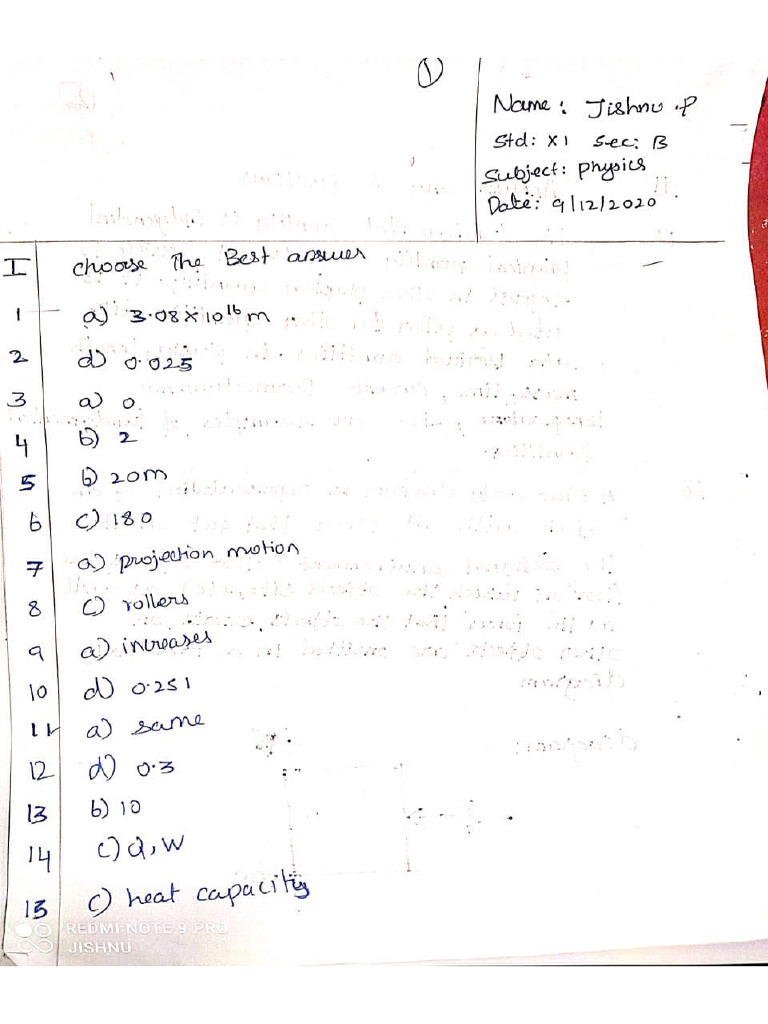 1
Name: Jishnu .P
Std: XI Sec: B
Subject: physics
Date: 9/12/2020
I choose The Best answer
1 a) 3.08×10¹⁶m
2 d) 0.025
3 a) 0
4 b) 2
5 b) 20m
6 c) 180
7 a) projection motion
8 c) rollers
9 a) increases
10 d) 0.251
11 a) same
12 d) 0.3
13 b) 10
14 c) Q, W
15 c) heat capacity
REDMI NOTE 9 PRO
JISHNU